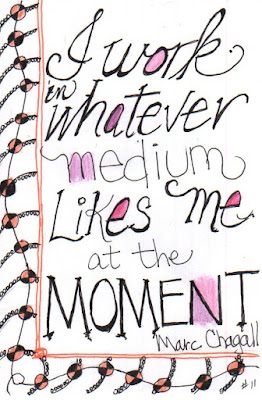 I work
in
whatever
medium
Likes me
at the
MOMENT
Marc Chagall
#11